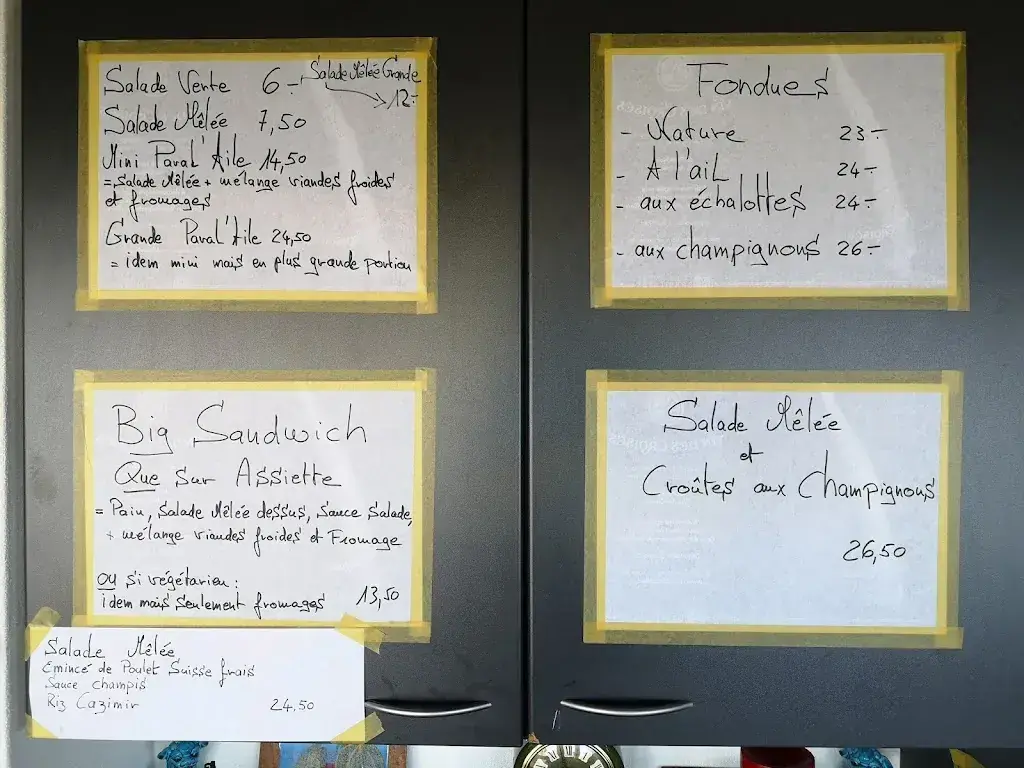 Salade Verte 6.- Salade Mêlée Grande
12.-
Salade Mêlée 7,50
Mini Paval'Aile 14,50
= Salade Mêlée + mélange viandes froides
et fromages
Grande Paval'Aile 24,50
= idem mini mais en plus grande portion
Fondues
- Nature 23.-
- A l'ail 24.-
- aux échalottes 24.-
- aux champignons 26.-
Big Sandwich
Que sur Assiette
= Pain, Salade Mêlée dessus, Sauce Salade,
+ mélange viandes froides et Fromage
ou si végétarien :
idem mais seulement fromages 13,50
Salade Mêlée
et
Croûtes aux Champignons
26,50
Salade Mêlée
Emincé de Poulet Suisse frais
Sauce champis
Riz Cazimir 24.50